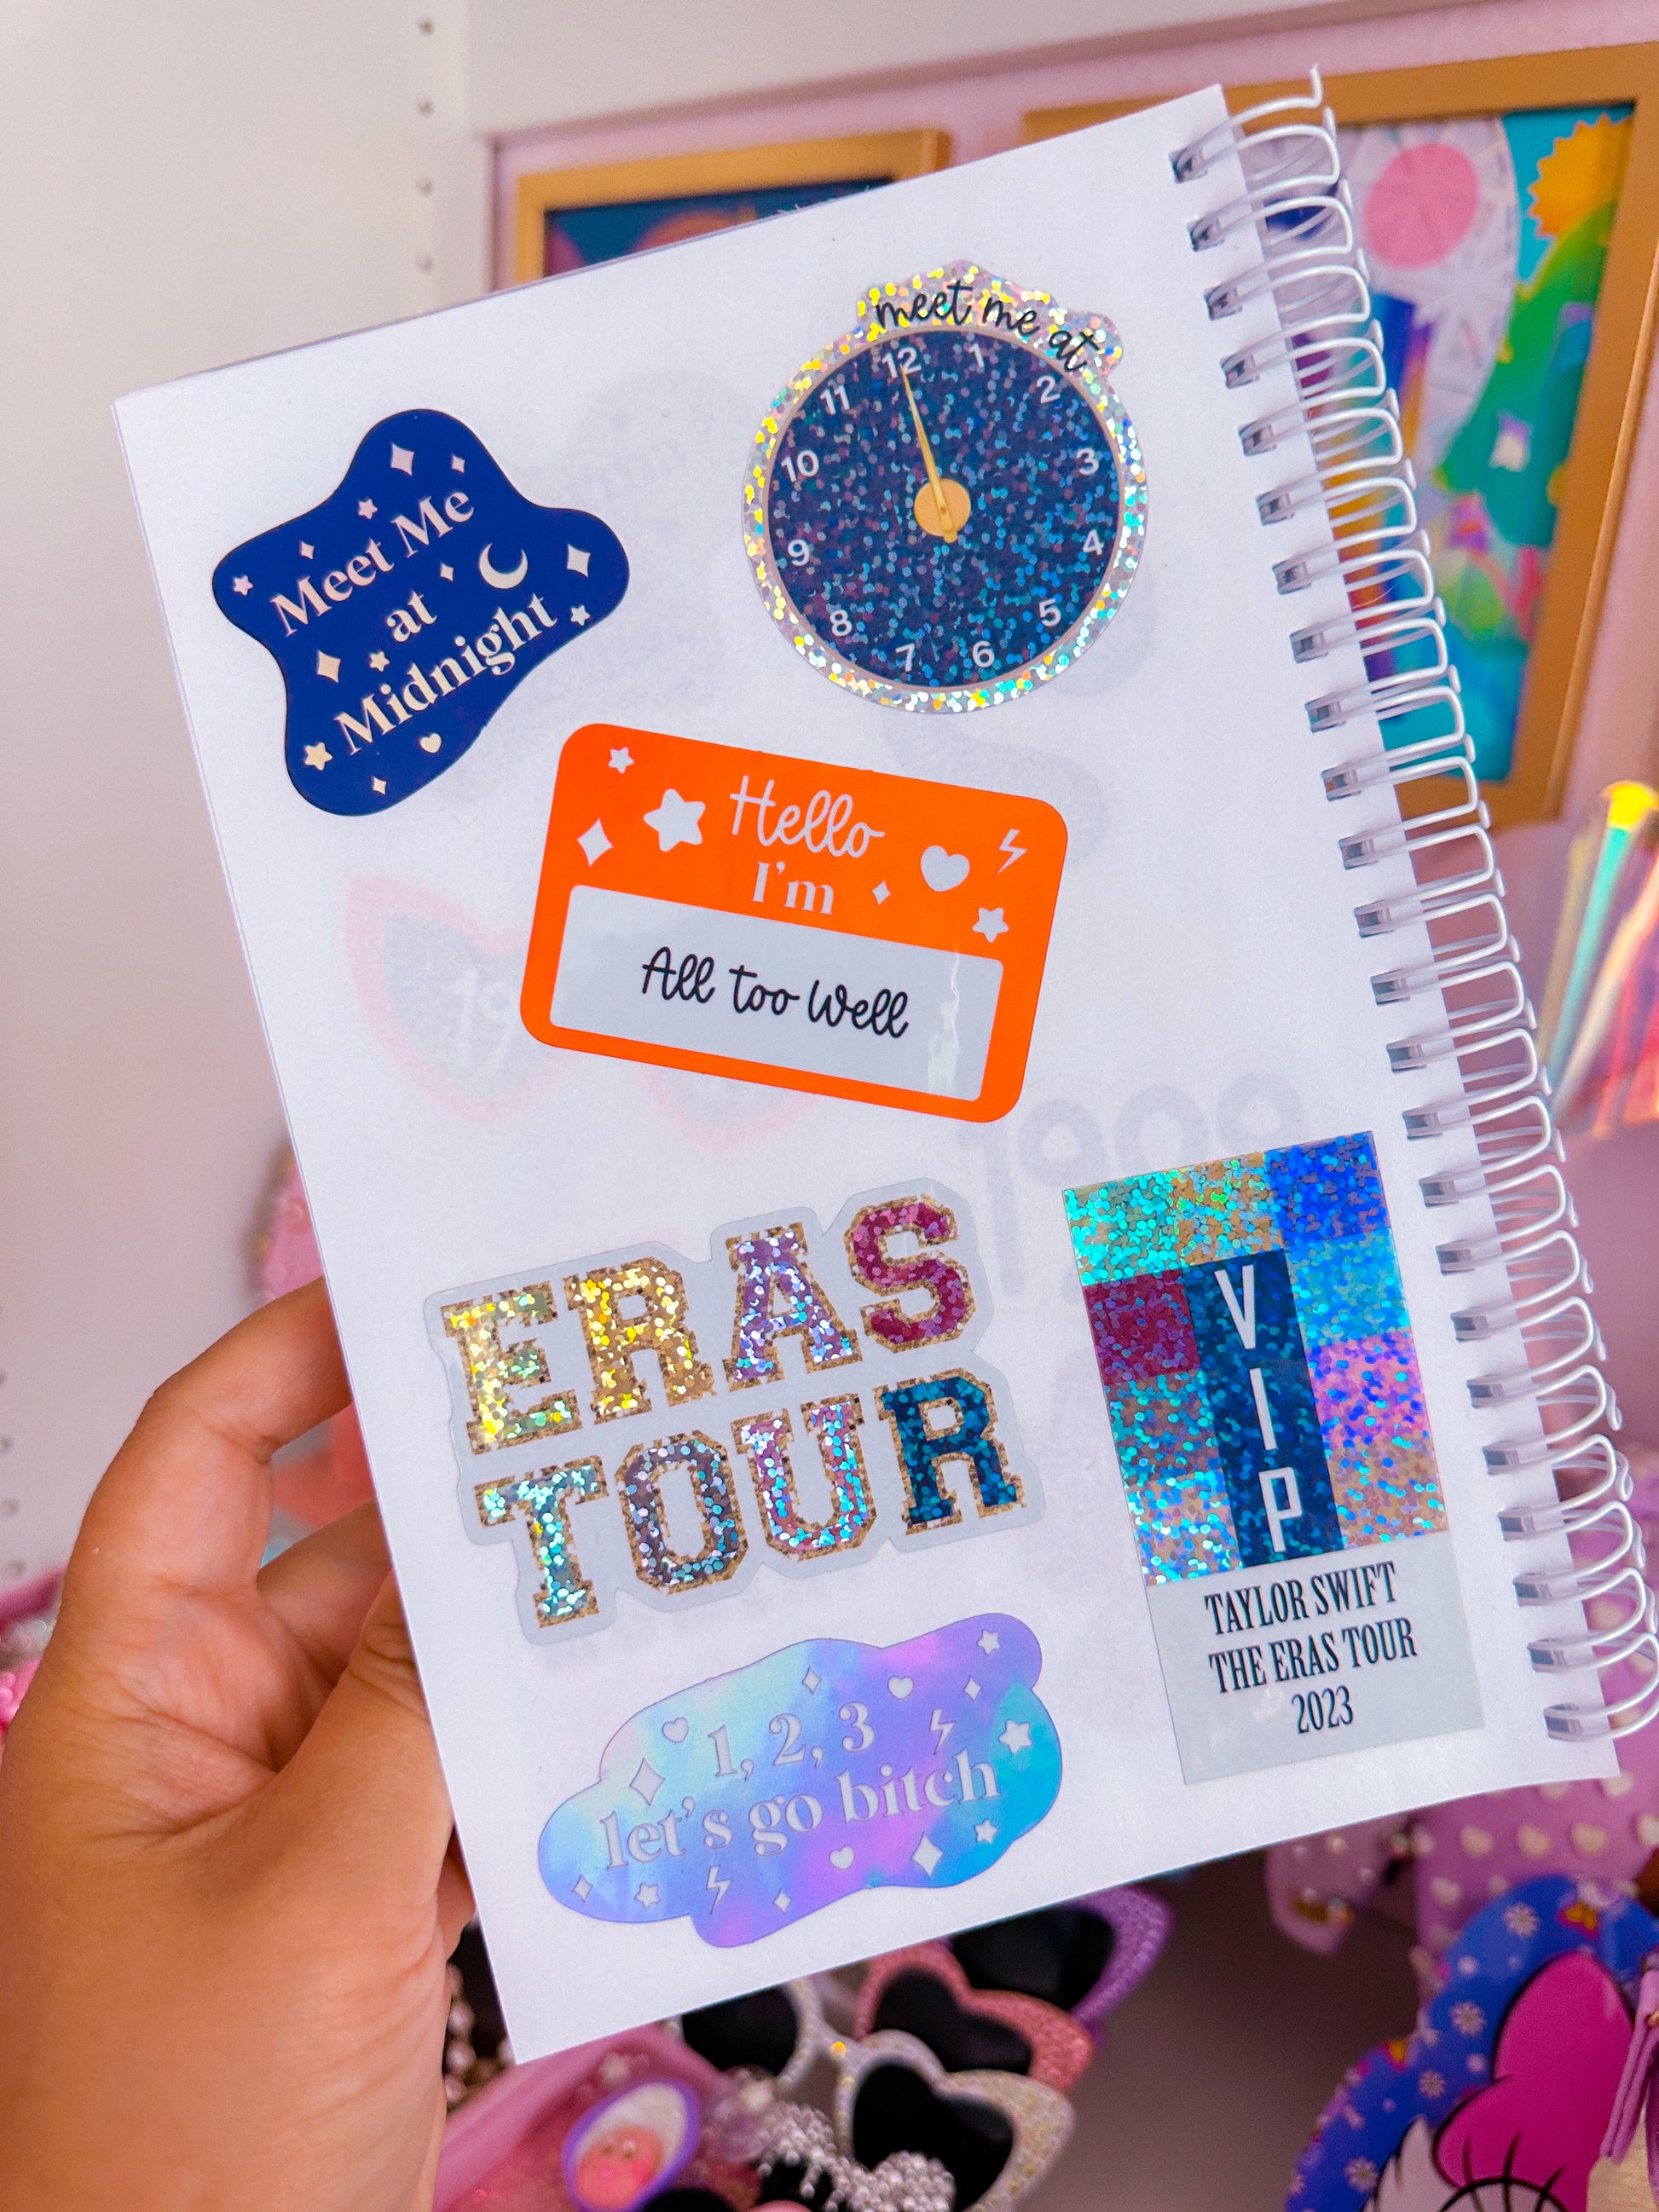 meet me at
12
1
2
3
4
5
6
7
8
9
10
11
Meet Me
at
Midnight
Hello
I'm
All too Well
ERAS
TOUR
VIP
TAYLOR SWIFT
THE ERAS TOUR
2023
1, 2, 3
let's go bitch